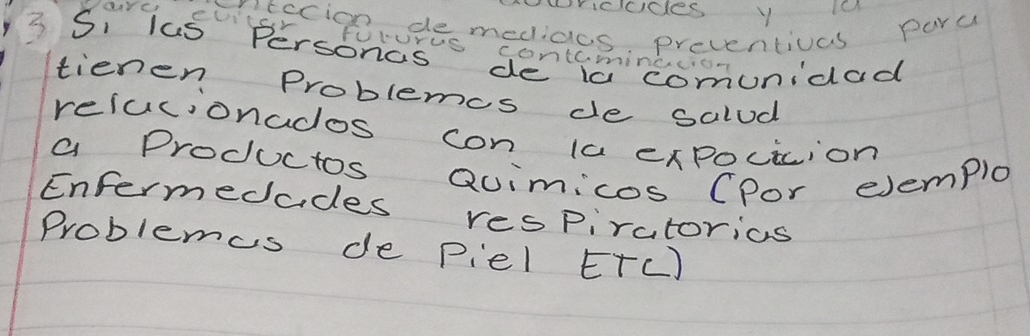 y la
de medidas preventivas para
evitar futuros contaminacion
3 Si las Personas de la comunidad
tienen Problemas de salud
relacionados con la expocicion
a Productos Quimicos (Por ejemplo
Enfermedades resPiratorias
Problemas de Piel ETC)